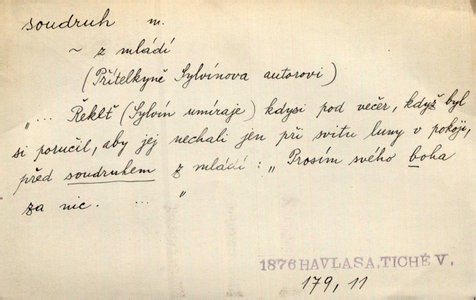 soudruh m.
~ z mládí
(Přítelkyně Sylvínova autorovi)
„... Řeklť (Sylvín umíraje) kdysi pod večer, když byl
si poručil, aby jej nechali jen při svitu luny v pokoji,
před soudruhem z mládí: „Prosím svého boha
za nic. ... "
1876 HAVLASA, TICHÉ V.
179, 11